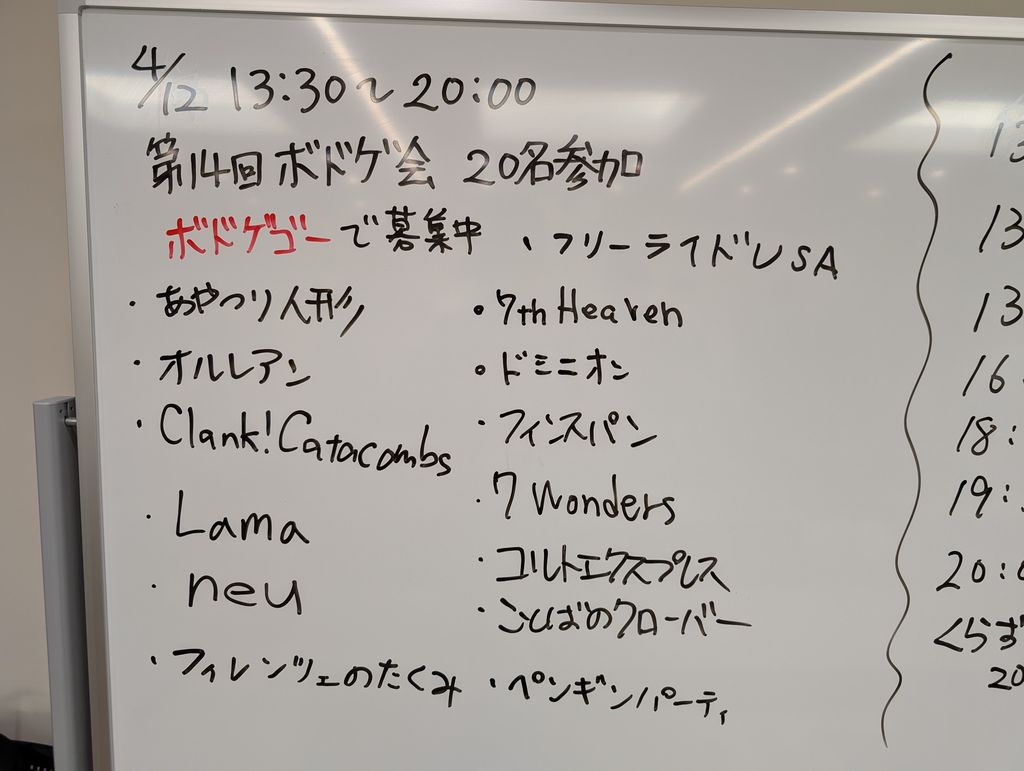 4/12 13:30〜20:00
第14回ボドゲ会 20名参加
ボドゲゴーで募集中
・フリーライドUSA
・あやつり人形
・オルレアン
・Clank!Catacombs
・Lama
・neu
・フィレンツェのたくみ
・7th Heaven
・ドミニオン
・フィンスパン
・7 Wonders
・コルトエクスプレス
・ことばのクローバー
・ペンギンパーティ
13
13
13
16
18:
19:
20:0
くらず
20